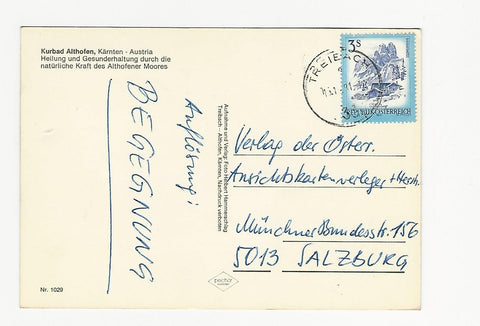 Kurbad Althofen, Kärnten - Austria
Heilung und Gesunderhaltung durch die
natürliche Kraft des Althofener Moores
Auflösung:
BEGEGNUNG
Nr. 1029
Aufnahme und Verlag: Foto Hubert Hammerschlag
Treibach – Althofen, Kärnten, Nachdruck verboten
3s
REPUBLIK ÖSTERREICH
TREIBACH
Verlag der Österr.
Ansichtskartenverleger + Herst.
Münchner Bundesstr. 156
5013 SALZBURG